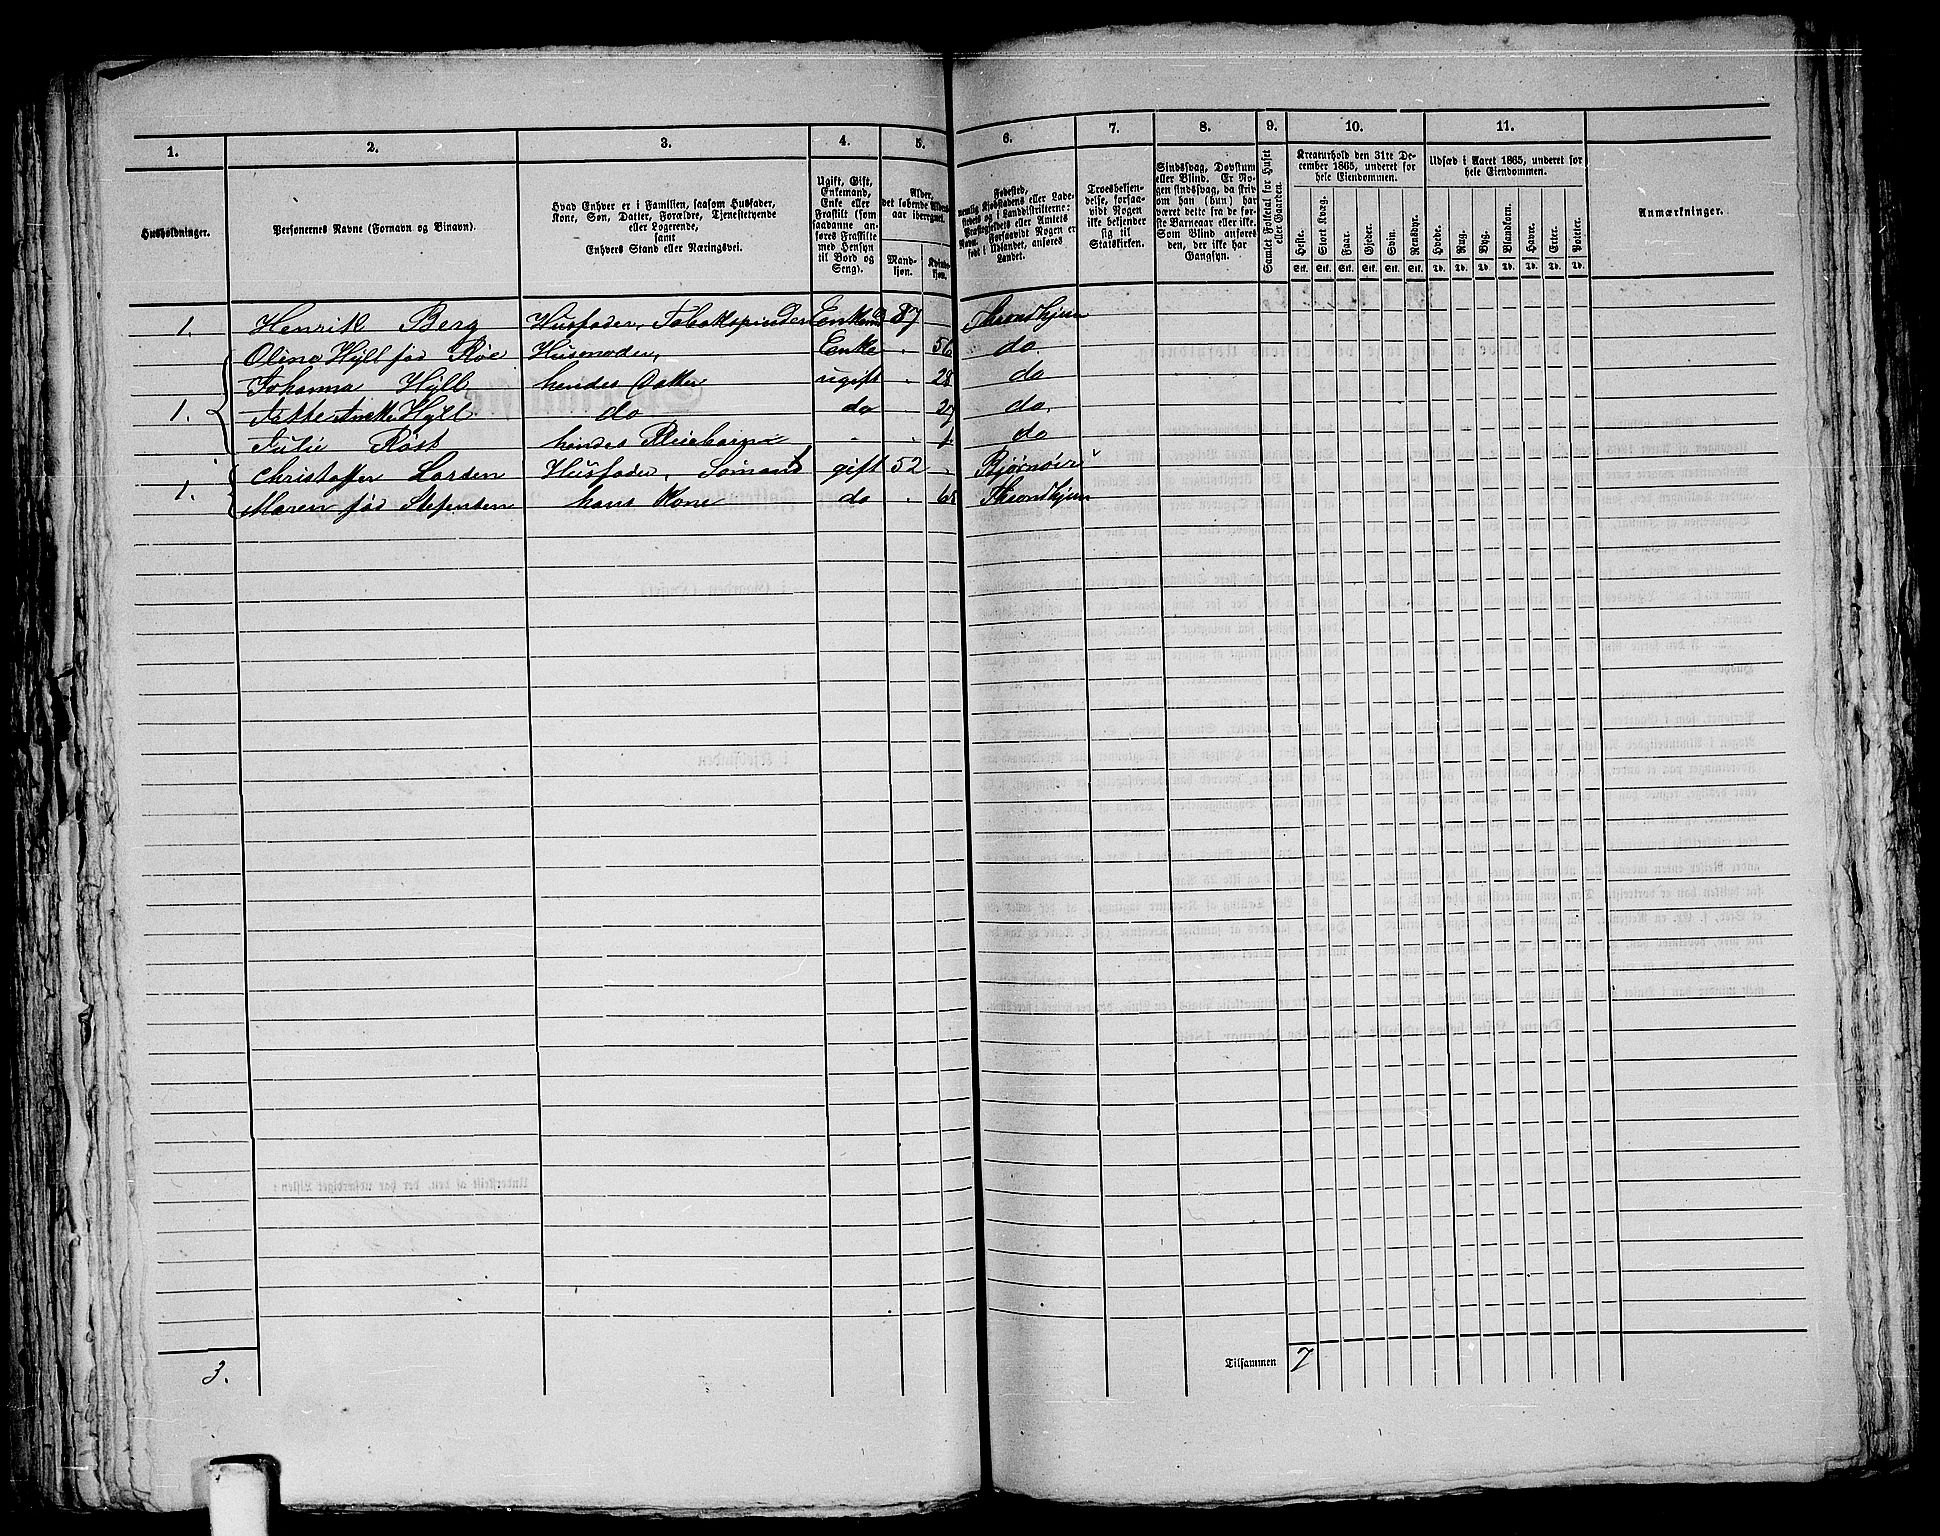 1. 2. 3. 4. 5. 6. 7. 8. 9. 10. 11.
Husholdninger.
Personernes Navne (Fornavn og Binavn).
Hvad Enhver er i Familien, saasom Husfader,
Kone, Søn, Datter, Forældre, Tjenestetyende
eller Logerende,
samt
Enhvers Stand eller Næringsvei.
Ugift, Gift,
Enkemand,
Enke eller
Fraskilt (som
saadanne an-
føres Fraskilte
med Hensyn
til Bord og
Seng).
Alder,
det løbende Alders-
aar iberegnet.
Mand-
kjøn.
Kvinde-
kjøn.
Fødested,
nemlig Kjøbstadens eller Lade-
stedets og i Landdistrikterne:
Præstegjeldets eller Amtets
Navn. Forsaavidt Nogen er
født i Udlandet, anføres
Landet.
Troesbekjen-
delse, forsaa-
vidt Nogen
ikke bekjender
sig til
Statskirken.
Sindssvag, Døvstum
eller Blind. Er No-
gen sindssvag, da skriv
om han (hun) har
været dette fra de før-
ste Barneaar eller ikke.
Som Blind anføres
den, der ikke har
Gangsyn.
Samlet Frilketal for Huset
eller Gaarden.
Kreaturhold den 31te De-
cember 1865, underet for
hele Eiendommen.
Heste. Stort Kvæg. Faar. Gjeder. Svin. Rensdyr.
Stk. Stk. Stk. Stk. Stk. Stk.
Udsæd i Aaret 1865, underet for
hele Eiendommen.
Hvede. Rug. Byg. Blandkorn. Havre. Erter. Poteter.
Td. Td. Td. Td. Td. Td. Td.
Anmærkninger.
1. Henrik Berg Husfader, Tobakspinder Enkemd 87 Throndhjem
Olina Hyll fød Röe Husmoder, Enke 56 do.
Johanna Hyll hendes Datter ugift 28 do
1. Jette Anette Hyll do do 27 do.
Julie Röst hendes Pleiebarn 1 do
Christoffer Larsen Husfader, Sømand gift 52
1. Maren fød Stefensen hans Kone do 65 Throndhjem
3. Tilsammen 7